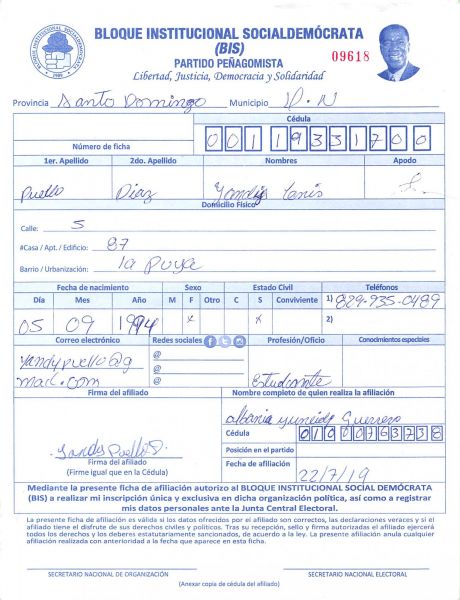 BLOQUE INSTITUCIONAL SOCIALDEMÓCRATA
(BIS)
PARTIDO PEÑAGOMISTA
Libertad, Justicia, Democracia y Solidaridad
09618
Provincia Santo Domingo Municipio D.N
Cédula
Número de ficha 00119331700
1er. Apellido 2do. Apellido Nombres Apodo
Puello Diaz
Domicilio Físico
Calle: 5
#Casa / Apt. / Edificio: 87
Barrio / Urbanización: la Puya
Fecha de nacimiento Sexo Estado Civil Teléfonos
Día Mes Año M F Otro C S Conviviente 1) 829-935-0489
05 09 1994 x x 2)
Correo electrónico Redes sociales Profesión/Oficio Conocimientos especiales
Yandypuello@g @
mail.com @
@ Estudiante
Firma del afiliado Nombre completo de quien realiza la afiliación
Guerrero
Cédula 01900763738
Posición en el partido
Firma del afiliado
(Firme igual que en la Cédula)
Fecha de afiliación 22/7/19
Mediante la presente ficha de afiliación autorizo al BLOQUE INSTITUCIONAL SOCIAL DEMÓCRATA
(BIS) a realizar mi inscripción única y exclusiva en dicha organización política, así como a registrar
mis datos personales ante la Junta Central Electoral.
La presente ficha de afiliación es válida si los datos ofrecidos por el afiliado son correctos, las declaraciones veraces y si el
afiliado tiene el disfrute de sus derechos civiles y políticos. Tras su recepción, sello y firma autorizados el afiliado ejercerá
todos los derechos y los deberes estatutariamente sancionados, de acuerdo a la ley. La presente afiliación anula cualquier
afiliación realizada con anterioridad a la fecha que aparece en esta ficha.
SECRETARIO NACIONAL DE ORGANIZACIÓN SECRETARIO NACIONAL ELECTORAL
(Anexar copia de cédula del afiliado)